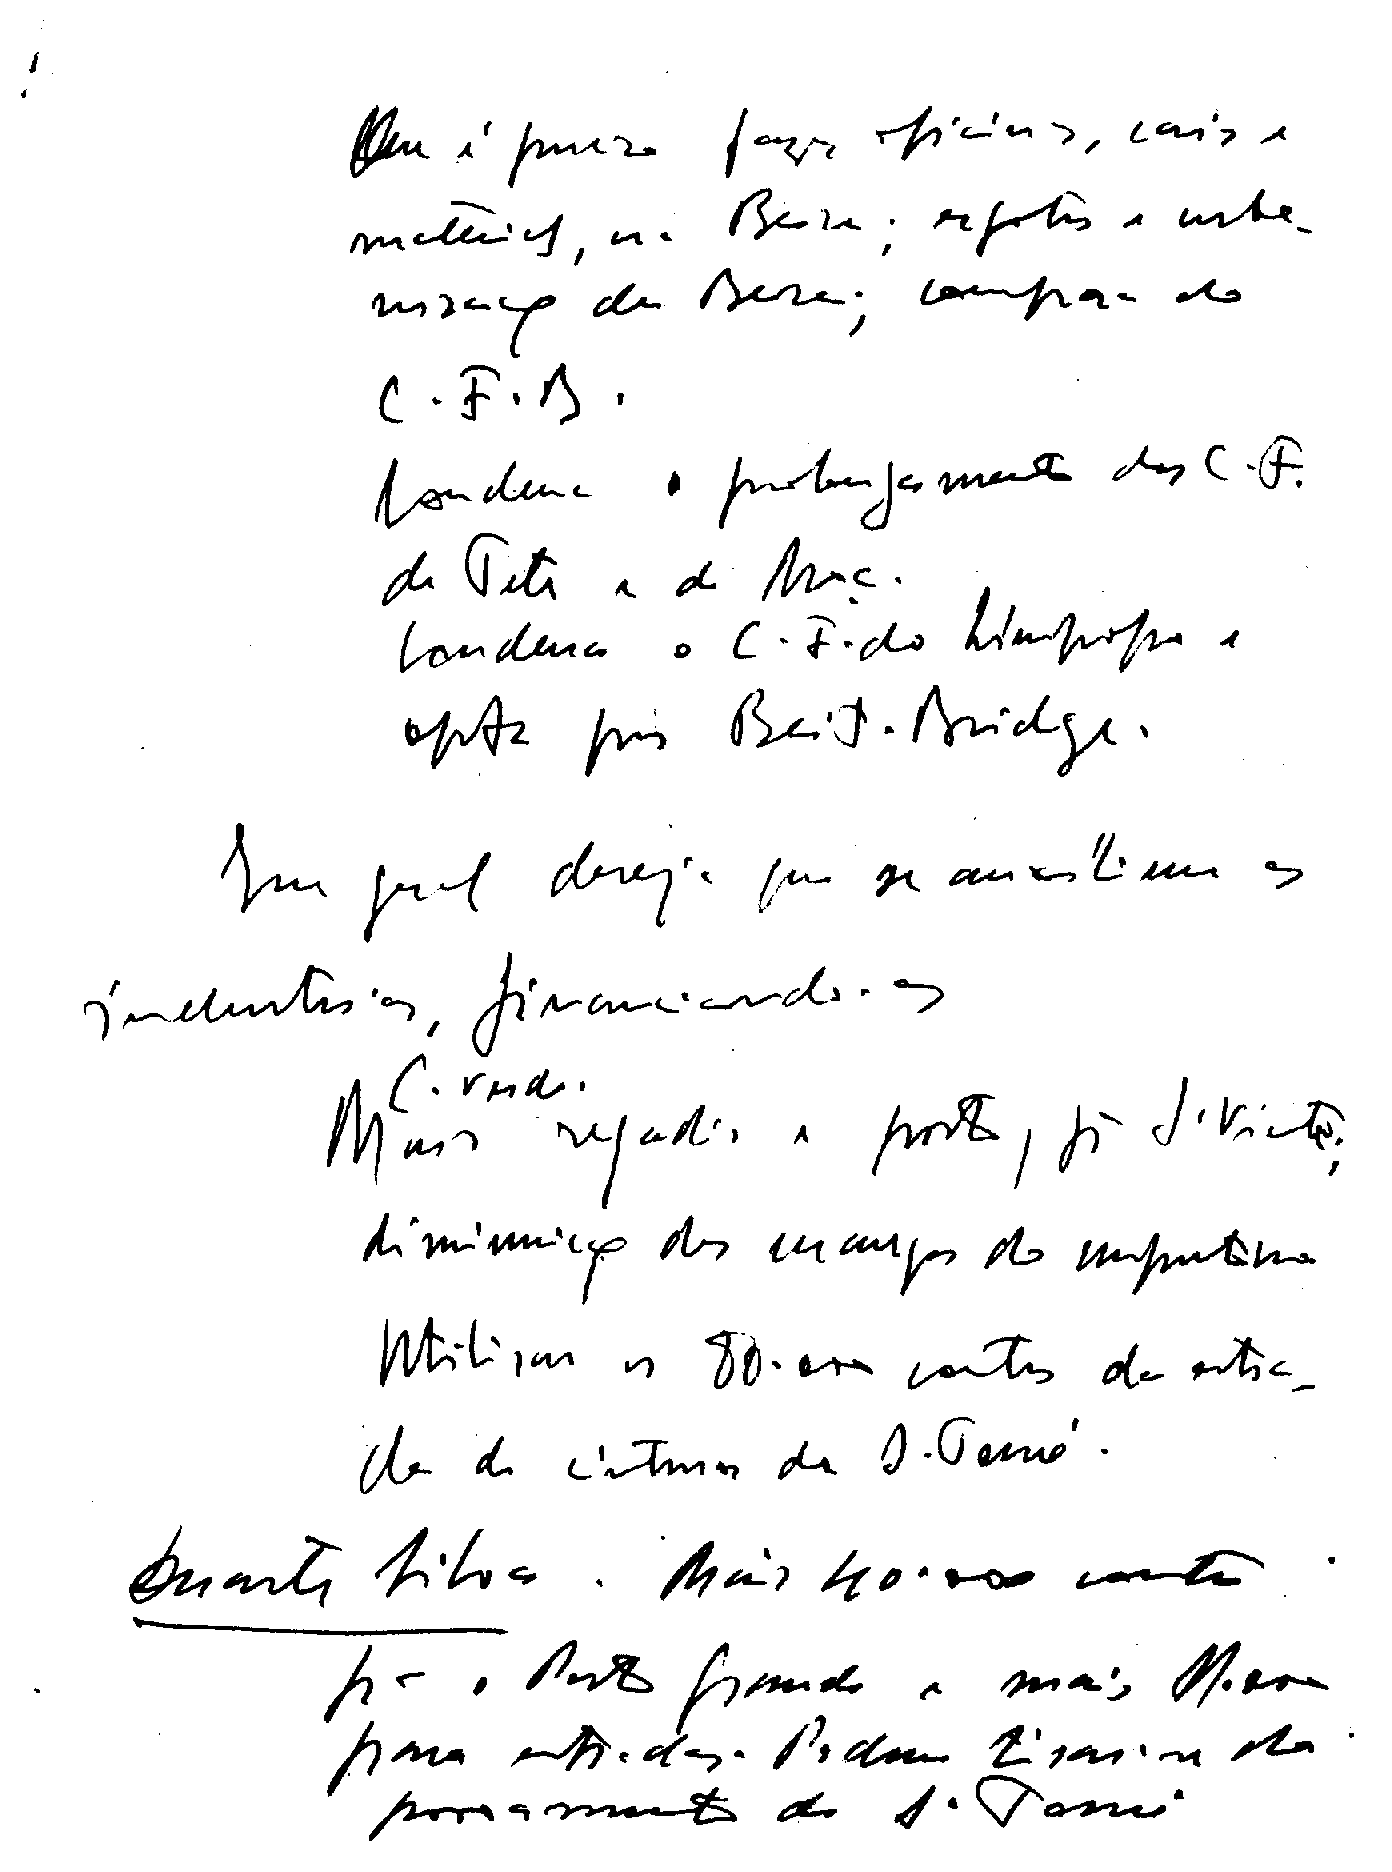 Que é preciso fazer oficinas, cais e
material, na Beira; esgotos e urba-
nização da Beira; compra do
C. F. B.
Condena o prolongamento dos C. F.
de Tete e de Moç.
Condena o C. F. do Limpopo e
opta por Beit-Bridge.
Em geral deseja que se auxiliem as
industrias, financiando-as
C. Verde.
Mais regadio e porto, pª S. Vicente;
diminuição das do
Utilizar os 80.000 contos da estra-
da de cintura de S. Tomé.
Duarte Silva. Mais 40.000 contos
pª o Porto Grande e mais
para estradas. Podem tirar-se do
povoamento de S. Tomé